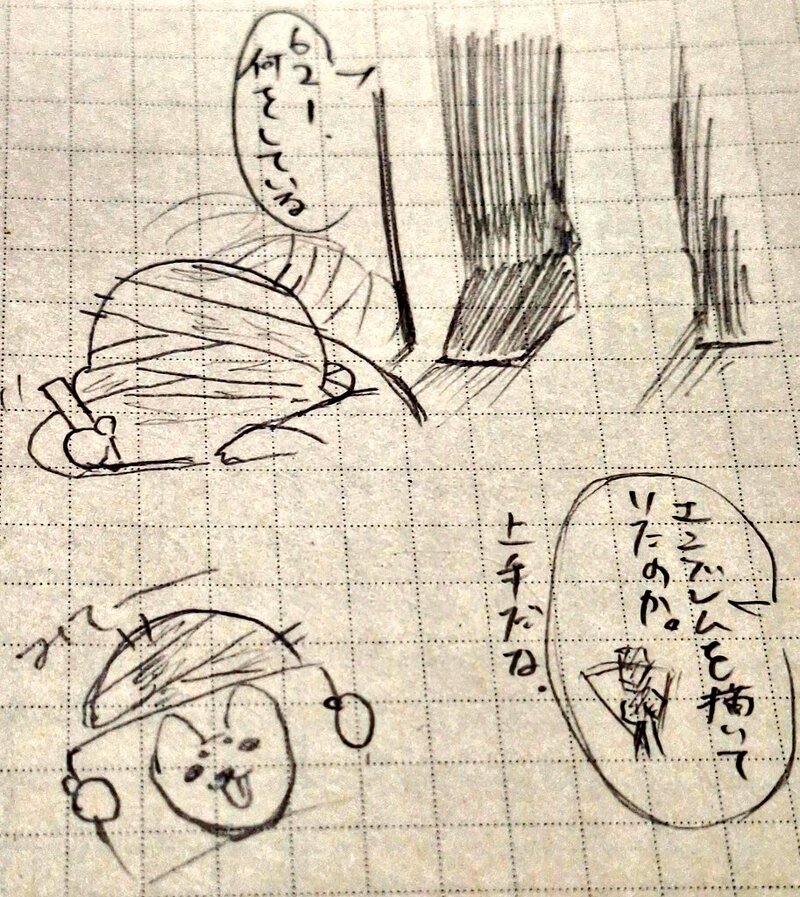 621.
何をしている
エンブレムを描いて
いたのか。
上手だな.
みて